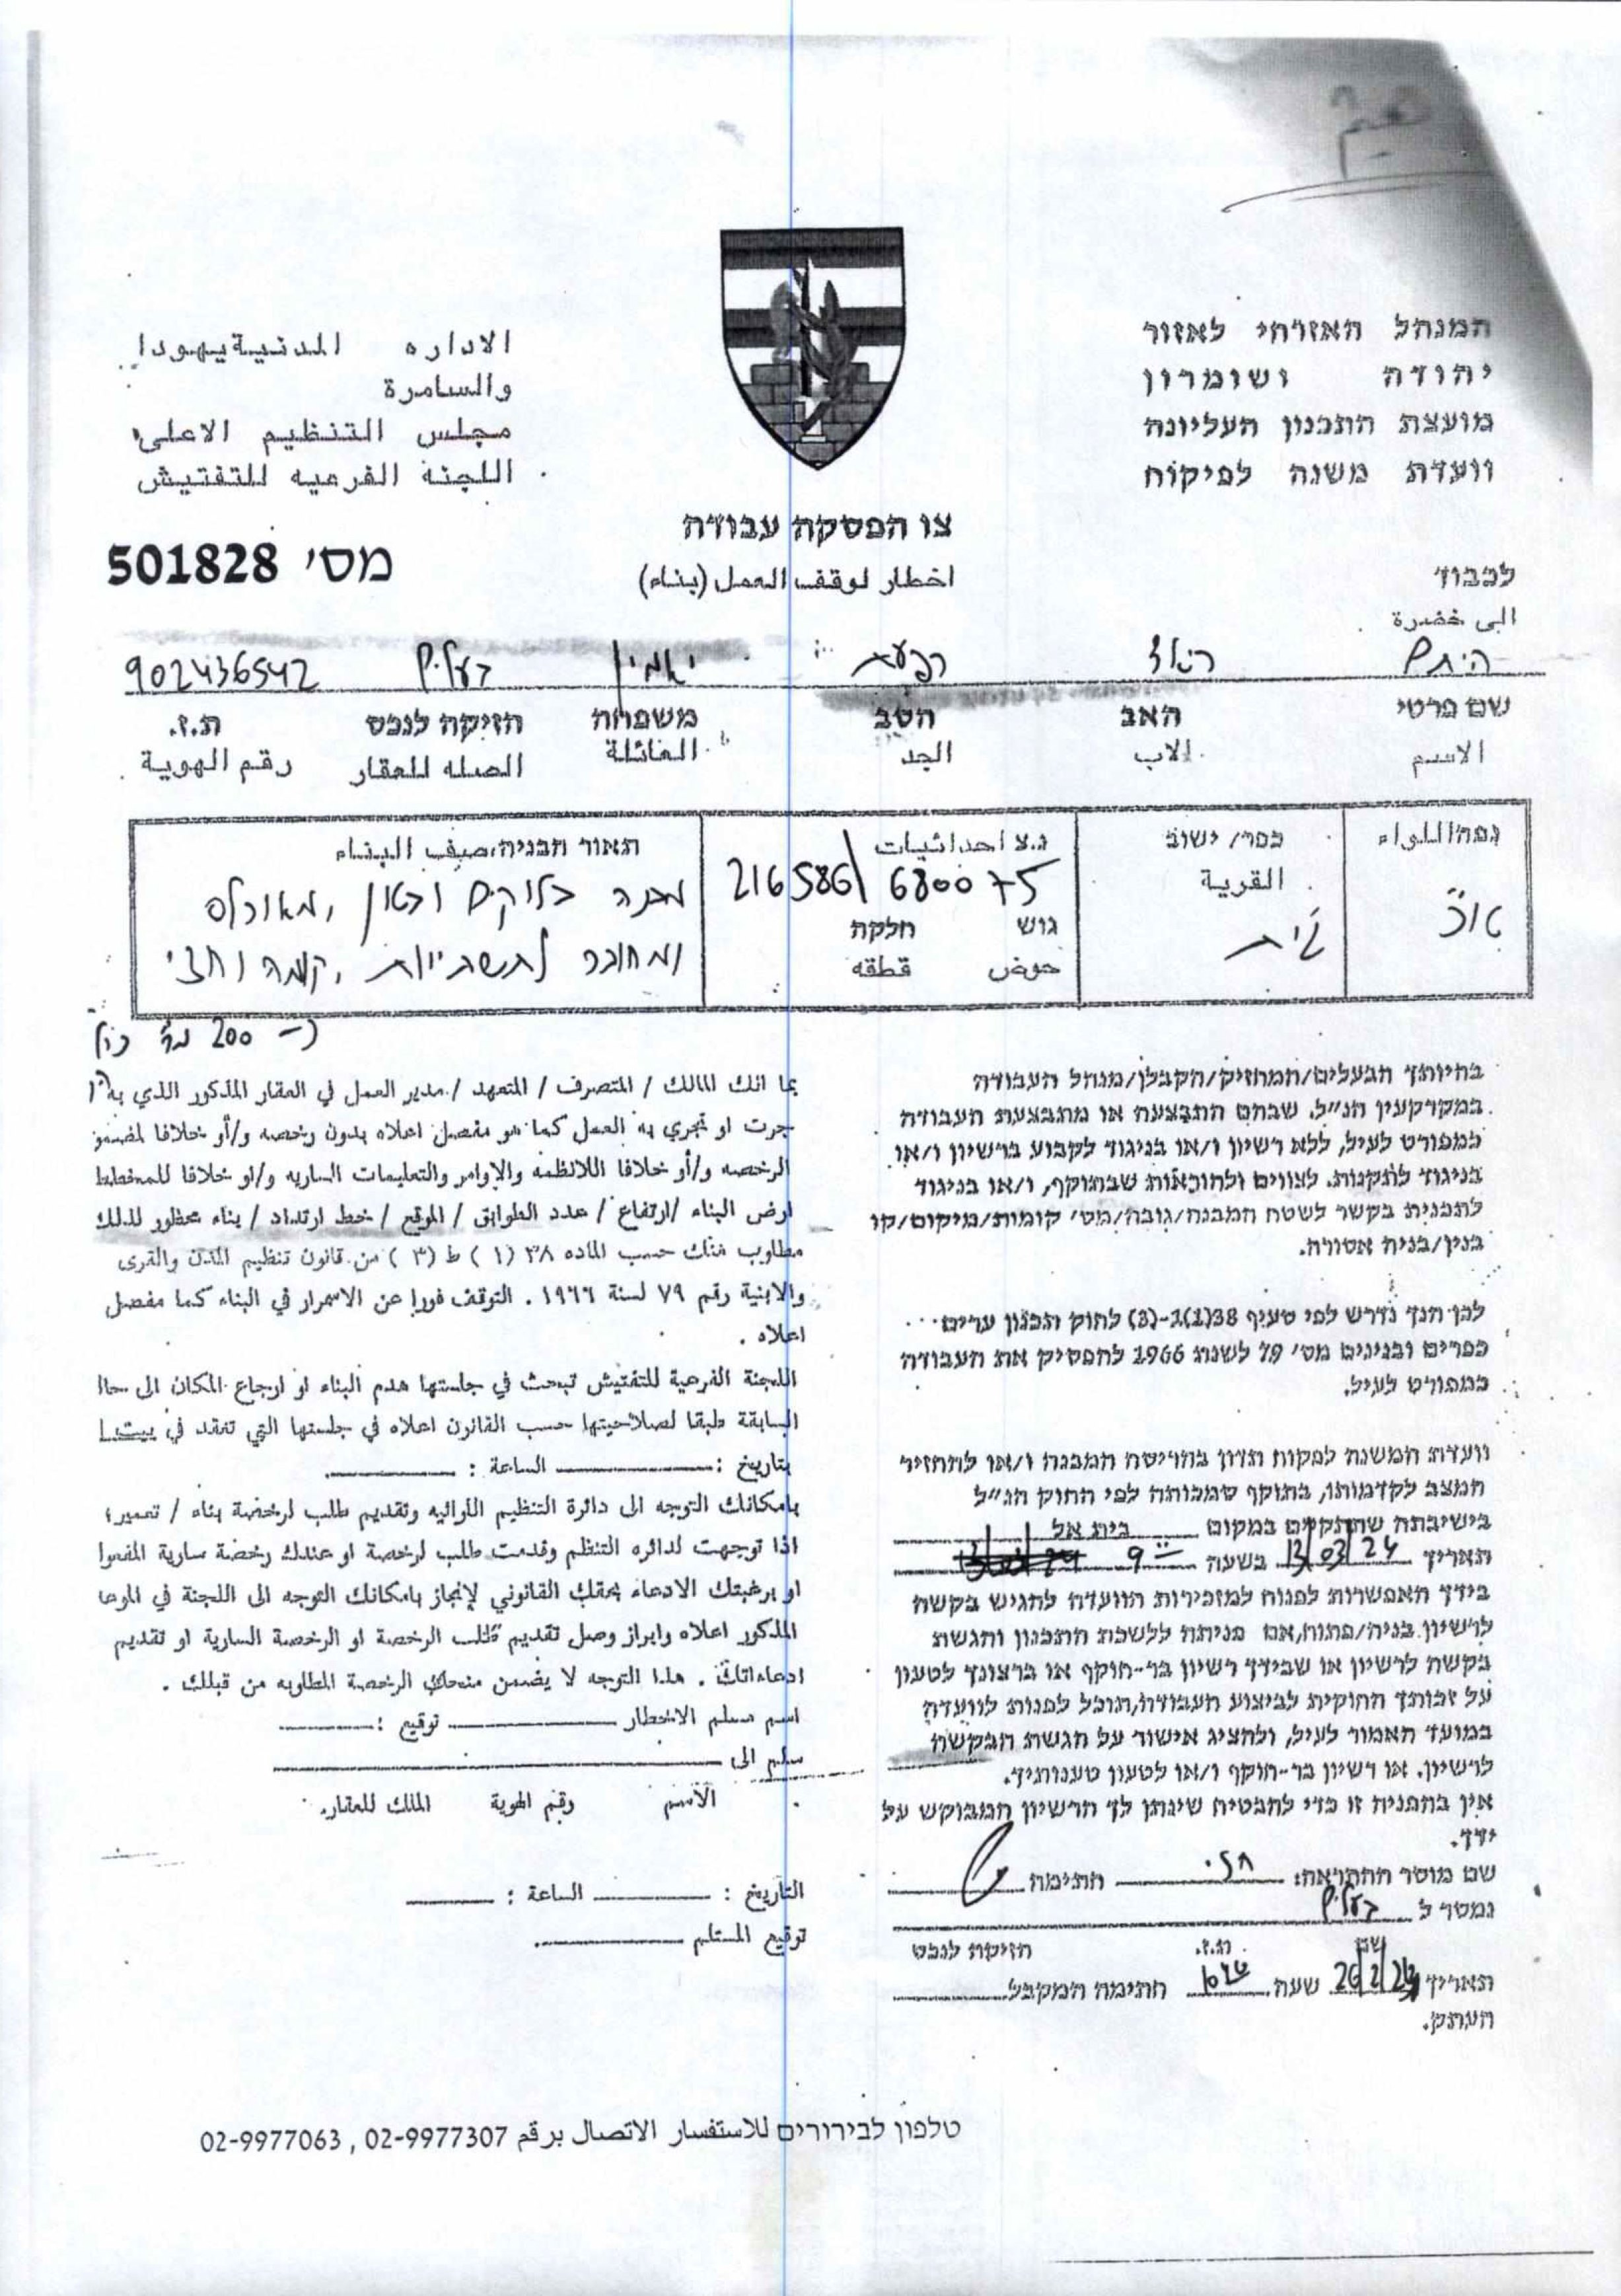 המנהל האזרחי לאזור
יהודה ושומרון
מועצת התכנון העליונה
וועדת משנה לפיקוח
الاداره المدنية يهودا
والسامرة
مجلس التنظيم الاعلى
اللجنة الفرعيه للتفتيش
צו הפסקת עבודה
اخطار لوقف العمل (بناء)
מס׳ 501828
לכבוד
الى حضرة
רפעת יאמין בעלים 902436542
שם פרטי האב הסב משפחה הזיקה לנכס ת.ז.
الاسم الاب الجد العائلة الصله للعقار رقم الهوية
נפה/اللواء
כפר/ ישוב
القرية
נ.צ احداثيات
216586/ 680075
גוש חלקה
حوض قطقه
תאור הבניה،صيف البناء
מבנה בלוקים ובטון, מאוכלס
ומחובר לתשתיות, קומה וחצי
כ- 200 מ"ר
בהיותך הבעלים/המחזיק/הקבלן/מנהל העבודה
במקרקעין הנ״ל. שבהם התבצעה או מתבצעת העבודה
כמפורט לעיל, ללא רשיון ו/או בניגוד לקבוע ברשיון ו/או
בניגוד לתקנות. לצווים ולהוראות שבתוקף, ו/או בניגוד
לתכנית בקשר לשטח המבנה/גובה/מס׳ קומות/מיקום/קו
בנין/בניה אסורה.
לכן הנך נדרש לפי סעיף 38(1)ב-(3) לחוק תכנון ערים
כפרים ובנינים מס׳ 79 לשנת 1966 להפסיק את העבודה
כמפורט לעיל.
וועדת המשנה לפקוח תדון בהריסת המבנה ו/או להחזיר
המצב לקדמותו, בתוקף סמכותה לפי החוק הנ״ל
בישיבתה שתתקיים במקום בית אל
תאריך 13/03/24 בשעה 9:00
בידך האפשרות לפנות למזכירות הוועדה להגיש בקשה
לרשיון בניה/פתוח,אם פניתה ללשכת התכנון והגשת
בקשה לרשיון או שבידך רשיון בר-תוקף או ברצונך לטעון
על זכותך החוקית לביצוע העבודה,תוכל לפנות לוועדה
במועד האמור לעיל, ולהציג אישור על הגשת הבקשה
לרשיון. או רשיון בר-תוקף ו/או לטעון טענותיך.
אין בהפניה זו כדי להבטיח שינתן לך הרשיון המבוקש על
ידך.
שם מוסר ההתראה: חתימה
נמסר ל בעלים
שם ת.ז. הזיקה לנכס
תאריך 26/2/24 שעה חתימת המקבל
העתק.
بما انك المالك / المتصرف / المتعهد / مدير العمل في العقار المذكور الذي به
جرت او تجري به العمل كما هو مفصل اعلاه بدون رخصه و/أو خلافا لمضمو
الرخصه و/أو خلافا اللانظمه والاوامر والتعليمات الساريه و/او خلافا للمخطط
ارض البناء /ارتفاع / عدد الطوابق / الموقع / خط ارتداد / بناء محظور لذلك
مطلوب منك حسب الماده ٣٨ (١) ط (٣) من قانون تنظيم المدن والقرى
والابنية رقم ٧٩ لسنة ١٩٦٦ . التوقف فورا عن الاسمرار في البناء كما مفصل
اعلاه .
اللجنة الفرعية للتفتيش تبحث في جلستها هدم البناء او ارجاع المكان الى حالا
السابقة طبقا لصلاحيتها حسب القانون اعلاه في جلستها التي تعقد في
بتاريخ : الساعة :
بامكانك التوجه الى دائرة التنظيم اللوائيه وتقديم طلب لرخصة بناء / تعمير؛
اذا توجهت لدائره التنظم وقدمت طلب لرخصة او عندك رخصة سارية المفعوا
او برغبتك الادعاء بحقك القانوني لإنجاز بامكانك التوجه الى اللجنة في
المذكور اعلاه وابراز وصل تقديم طلب الرخصة او الرخصة السارية او تقديم
ادعاءاتك . هذا التوجه لا يضمن منحك الرخصة المطلوبه من قبلك .
اسم مسلم الاخطار توقيع :
سلم الى
الاسم رقم الهوية المالك للعقار.
التاريخ : الساعة :
توقيع المستلم
טלפון לבירורים للاستفسار الاتصال برقم 02-9977307 , 02-9977063